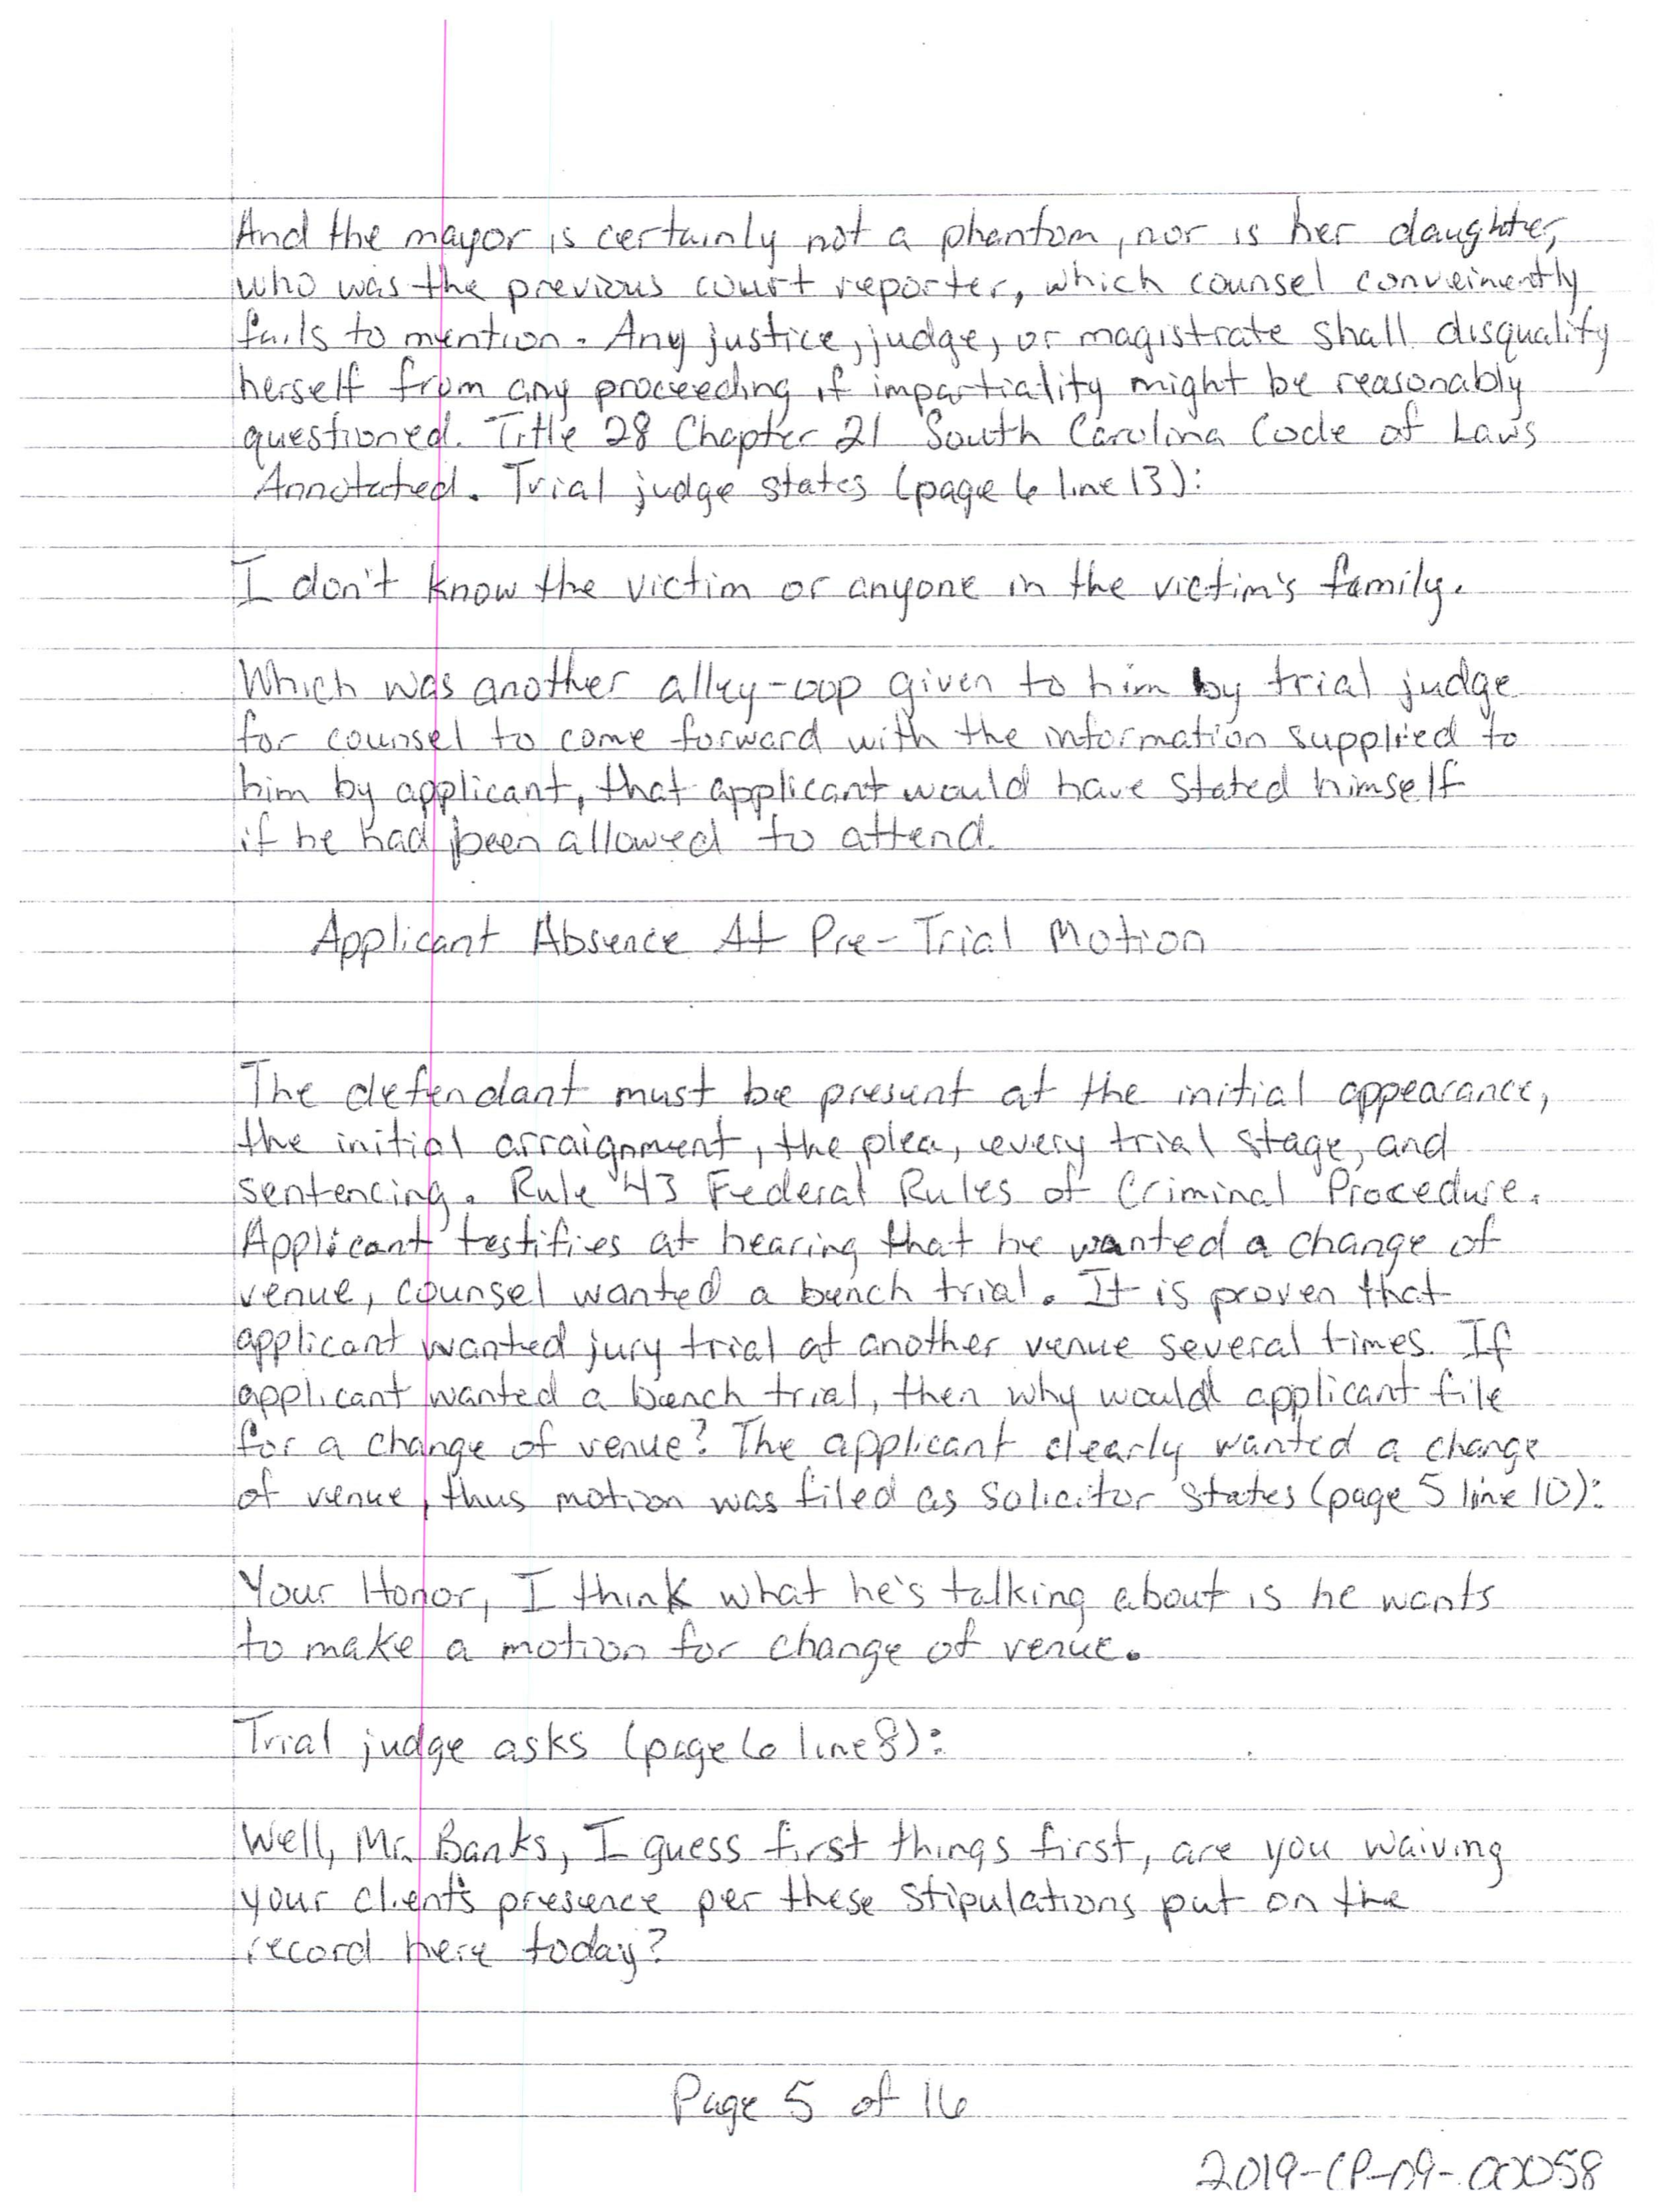 And the mayor is certainly not a phantom, nor is her daughter,
who was the previous court reporter, which counsel conveinently
fails to mention. Any justice, judge, or magistrate shall disqualify
herself from any proceeding if impartiality might be reasonably
questioned. Title 28 Chapter 21 South Carolina Code of Laws
Annotated. Trial judge states (page 6 line 13):
I don't know the victim or anyone in the victim's family.
Which was another alley-oop given to him by trial judge
for counsel to come forward with the information supplied to
him by applicant, that applicant would have stated himself
if he had been allowed to attend.
Applicant Absence At Pre-Trial Motion
The defendant must be present at the initial appearance,
the initial arraignment, the plea, every trial stage, and
sentencing. Rule 43 Federal Rules of Criminal Procedure.
Applicant testifies at hearing that he wanted a change of
venue, counsel wanted a bench trial. It is proven that
applicant wanted jury trial at another venue several times. If
applicant wanted a bench trial, then why would applicant file
for a change of venue? The applicant clearly wanted a change
of venue, thus motion was filed as solicitor states (page 5 line 10):
Your Honor, I think what he's talking about is he wants
to make a motion for change of venue.
Trial judge asks (page 6 line 8):
Well, Mr. Banks, I guess first things first, are you waiving
your client's presence per these stipulations put on the
record here today?
Page 5 of 16
2019-CP-09-00058